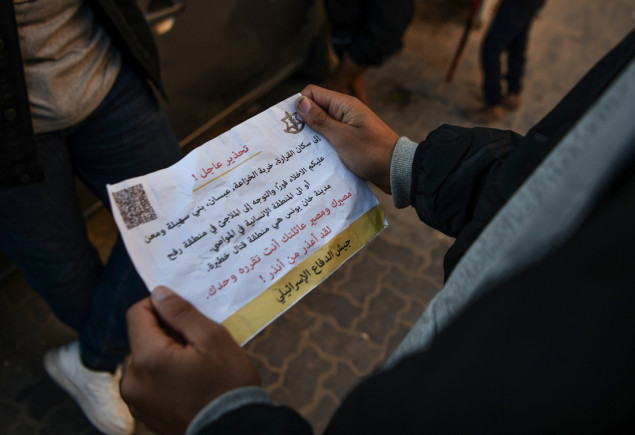 تحذير عاجل !
الى سكان القرارة، خربة الخزاعة، عبسان، بني سهيلة ومعن
عليكم الاخلاء فورًا والتوجه إلى الملاجئ في منطقة رفح
أو الى المنطقة الإنسانية في المواصي
مدينة خان يونس هي منطقة قتال خطيرة.
مصيرك ومصير عائلتك أنت تقرره وحدك.
لقد أعذر من أنذر !
جيش الدفاع الإسرائيلي